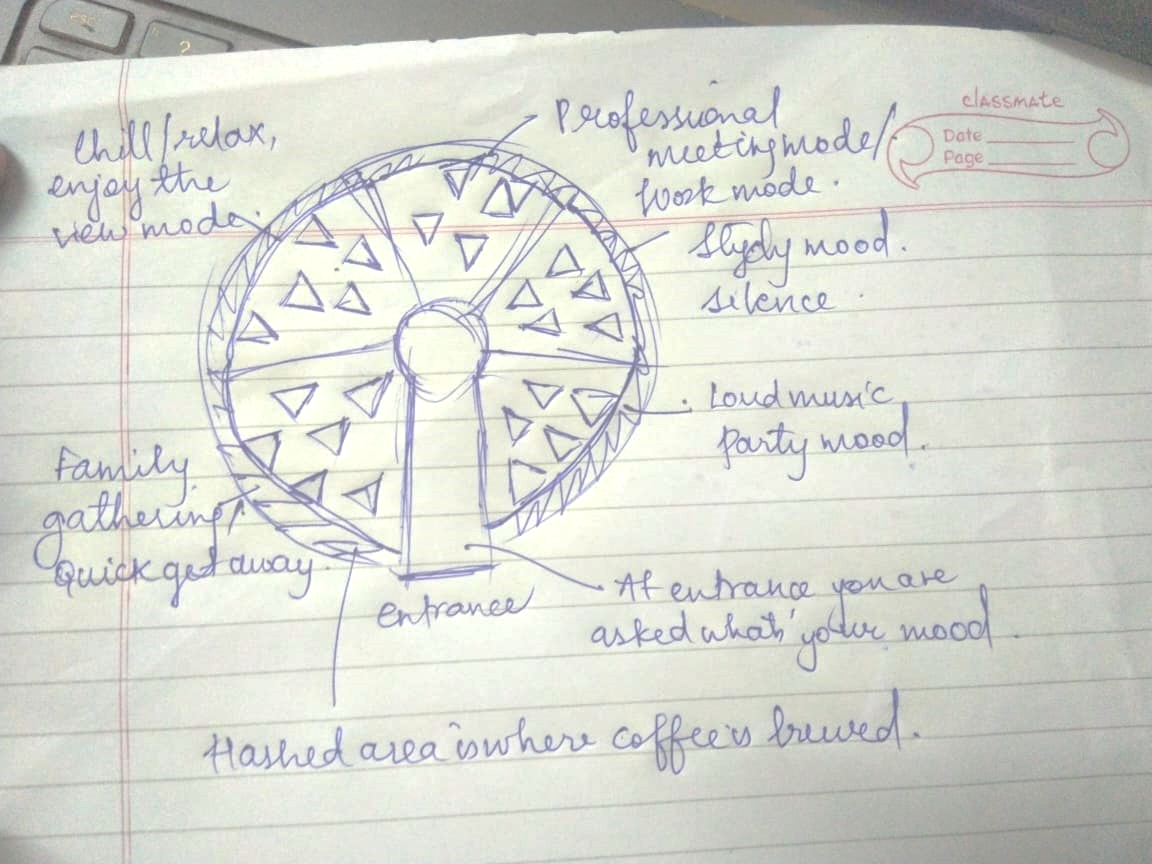 esc
?
classmate
Date
Page
Chill/relax,
enjoy the
view mode.
Professional
meeting mode/
Work mode.
Study mood.
silence.
Loud music
Party mood.
Family
gathering/
Quick get away.
entrance
At entrance you are
asked what's your mood.
Hashed area is where coffee is brewed.